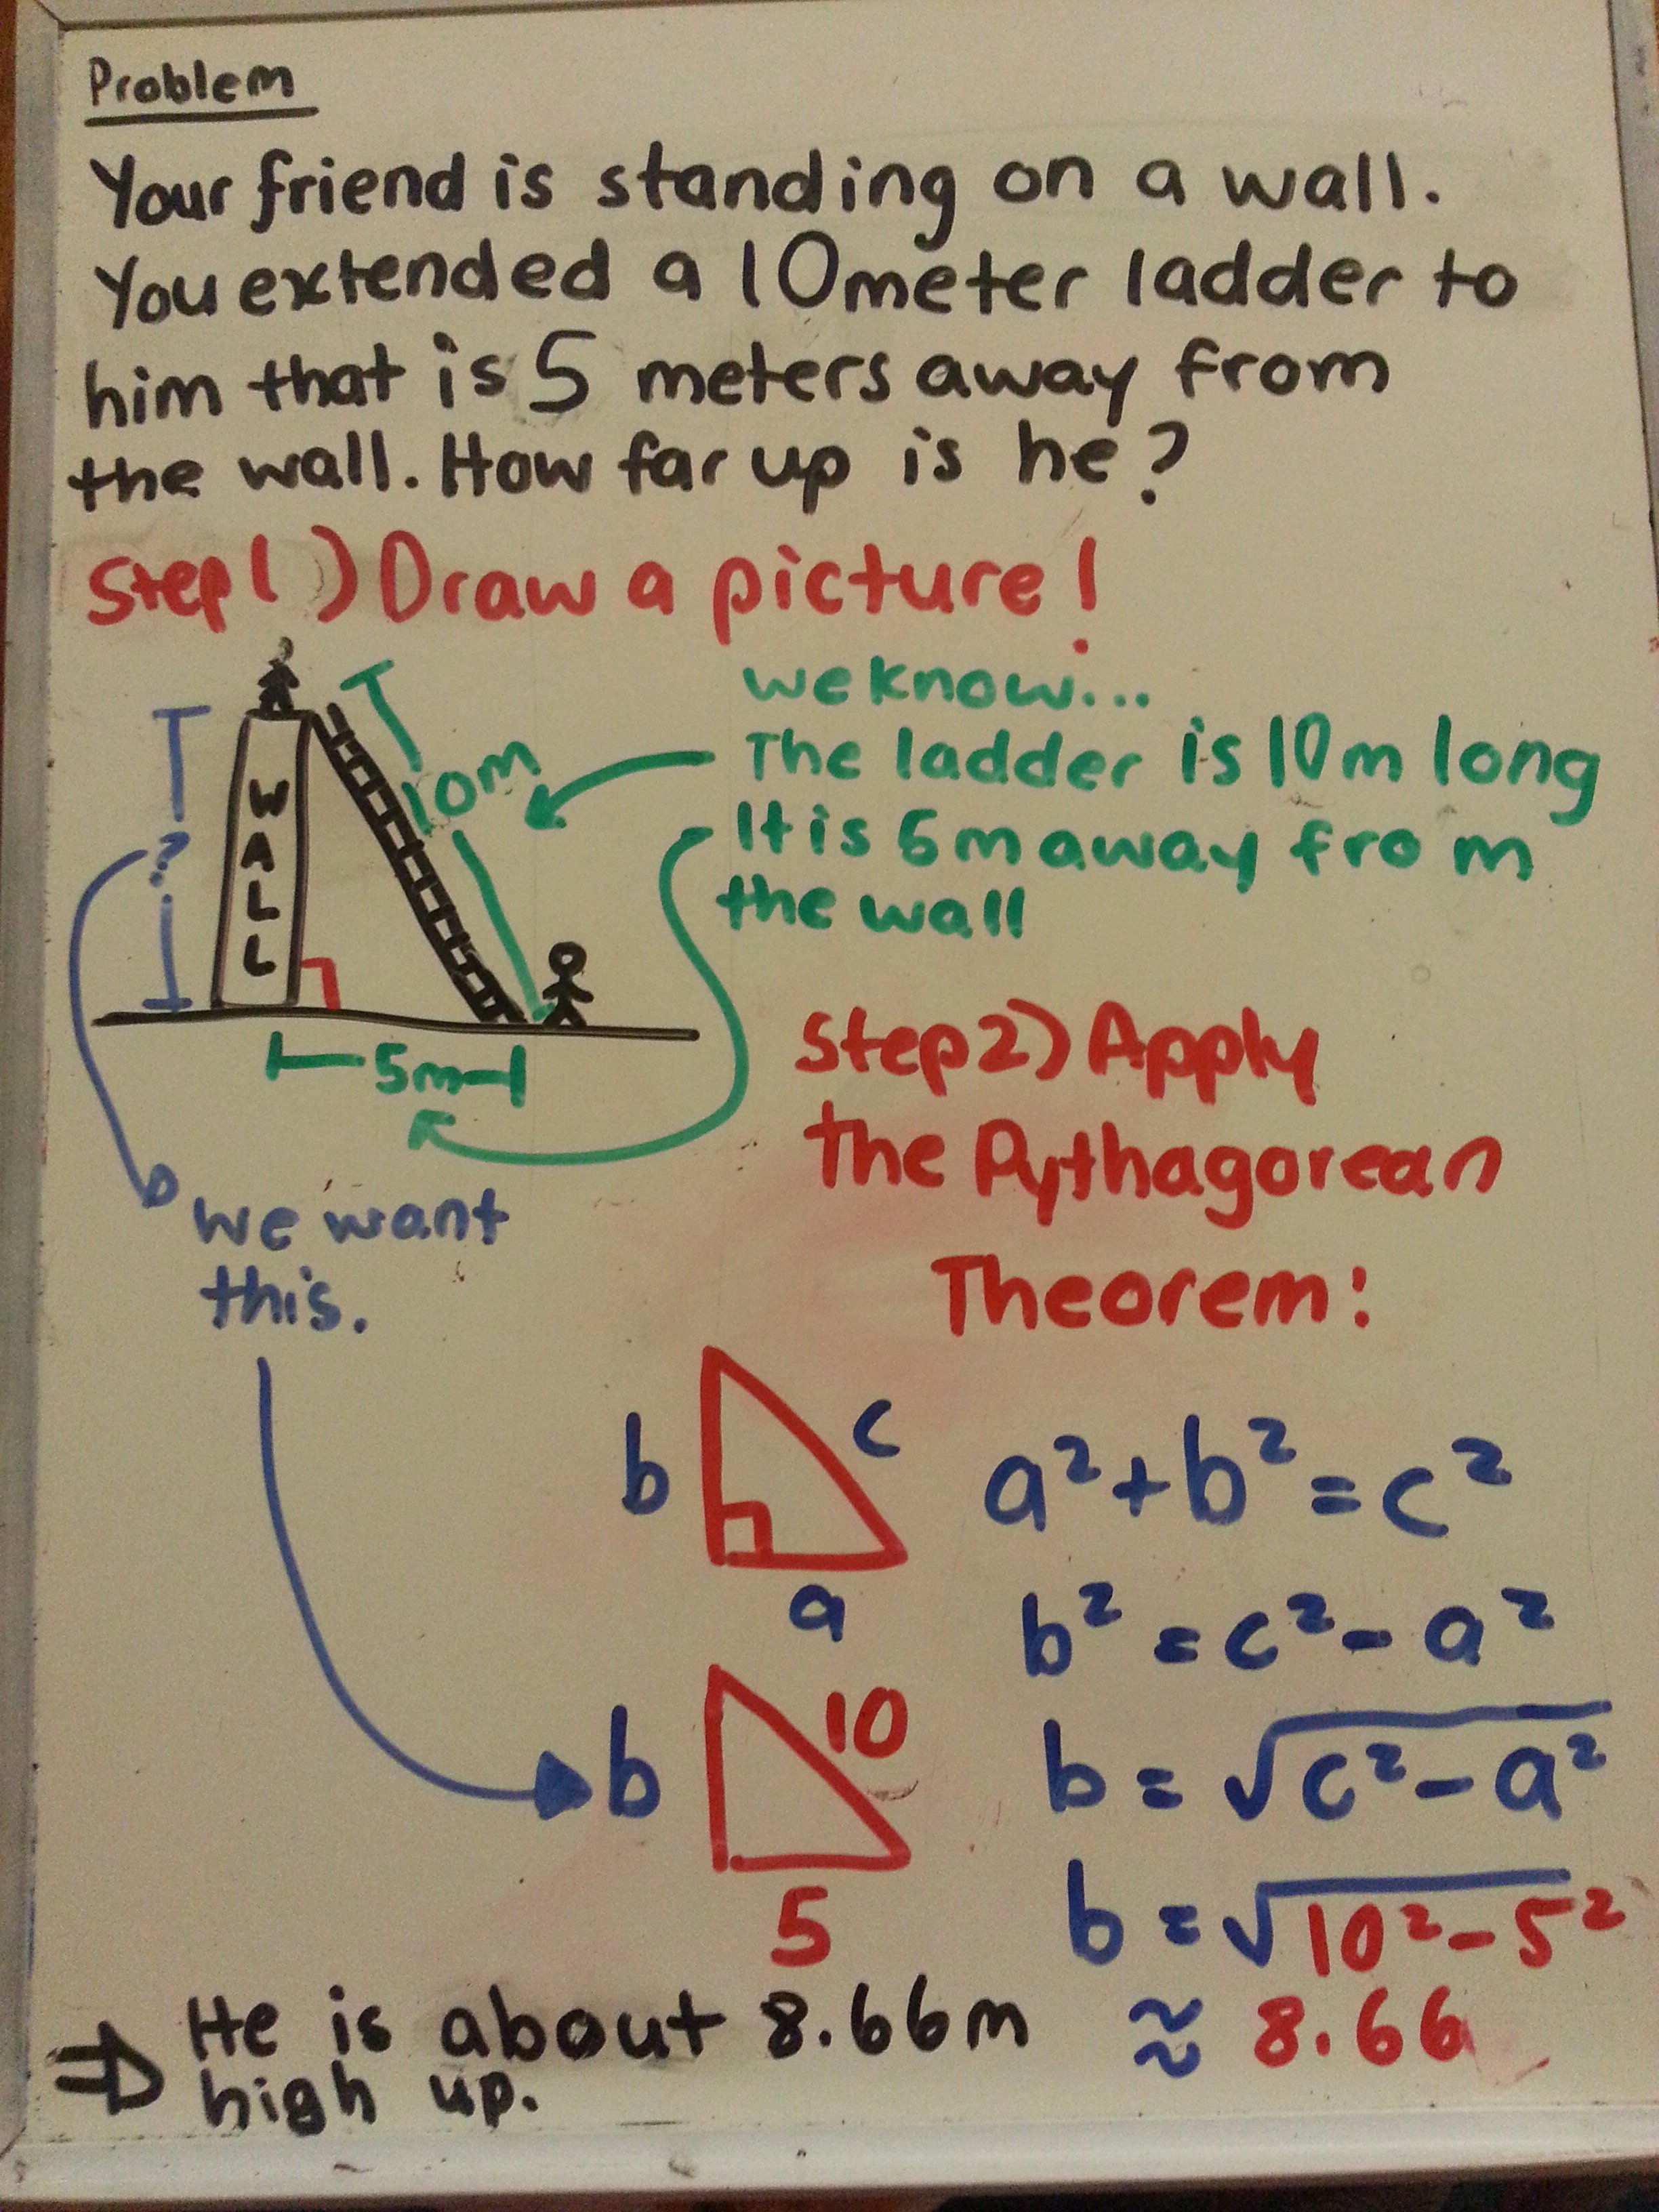 Problem
Your friend is standing on a wall.
You extended a 10meter ladder to
him that is 5 meters away from
the wall. How far up is he?
Step 1) Draw a picture!
we know...
The ladder is 10m long
It is 5m away from
the wall
WALL
10m
?
5m
we want
this.
Step 2) Apply
the Pythagorean
Theorem:
b c
a
a² + b² = c²
b² = c² - a²
b 10
5
b = √c² - a²
b = √10² - 5²
≈ 8.66
⇒ He is about 8.66m
high up.